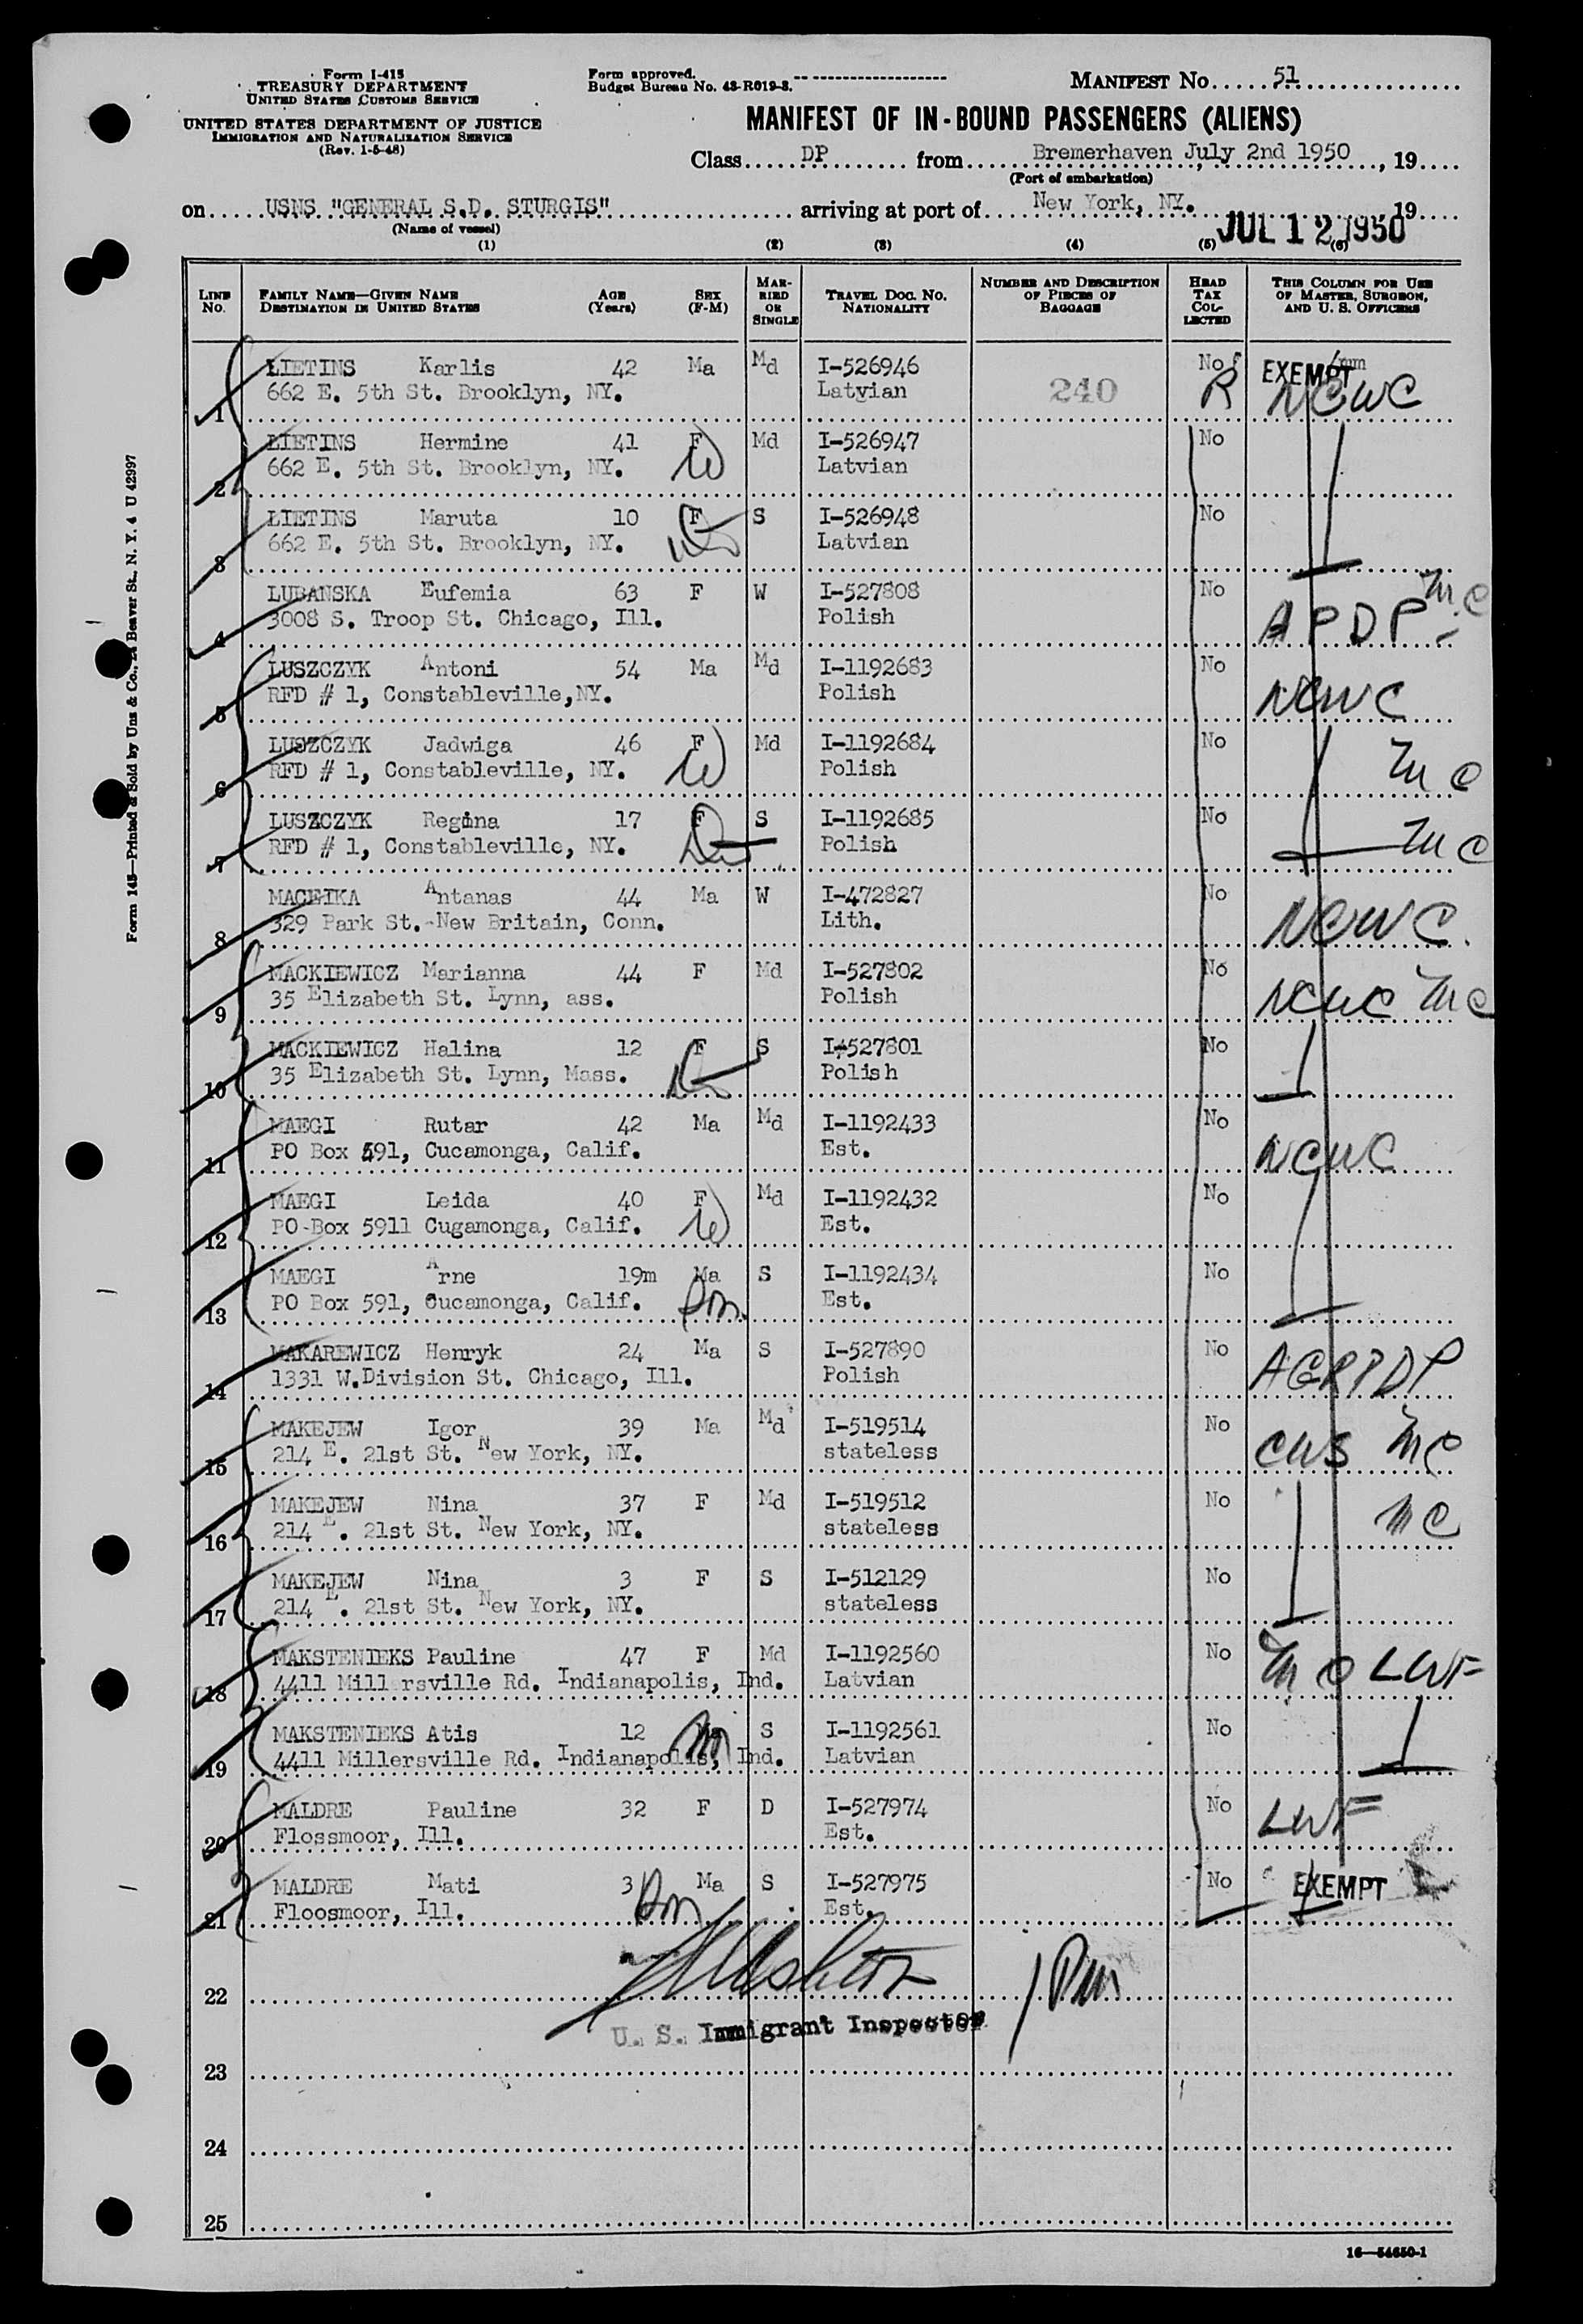 Form I-415
TREASURY DEPARTMENT
UNITED STATES CUSTOMS SERVICE
UNITED STATES DEPARTMENT OF JUSTICE
IMMIGRATION AND NATURALIZATION SERVICE
(Rev. 1-5-48)
Form approved.
Budget Bureau No. 43-R019-3.
MANIFEST No. 51
MANIFEST OF IN-BOUND PASSENGERS (ALIENS)
Class DP from Bremerhaven, July 2nd 1950, 19
(Port of embarkation)
on USNS "GENERAL S.D. STURGIS" arriving at port of New York, NY. 19
(Name of vessel)
JUL 12 1950
(1) (2) (3) (4) (5) (6)
LINE No. FAMILY NAME—GIVEN NAME DESTINATION IN UNITED STATES AGE (Years) SEX (F-M) MARRIED OR SINGLE TRAVEL DOC. NO. NATIONALITY NUMBER AND DESCRIPTION OF PIECES OF BAGGAGE HEAD TAX COLLECTED THIS COLUMN FOR USE OF MASTER, SURGEON, AND U. S. OFFICERS
1 LIETINS Karlis 42 Ma Md I-526946 No EXEMPT
662 E. 5th St. Brooklyn, NY. Latvian 240 R NCWC
2 LIETINS Hermine 41 F Md I-526947 No
662 E. 5th St. Brooklyn, NY. W Latvian
3 LIETINS Maruta 10 F S I-526948 No
662 E. 5th St. Brooklyn, NY. Latvian
4 LUBANSKA Eufemia 63 F W I-527808 No
3008 S. Troop St. Chicago, Ill. Polish APDP MC
5 LUSZCZYK Antoni 54 Ma Md I-1192683 No
RFD # 1, Constableville,NY. Polish NCWC
6 LUSZCZYK Jadwiga 46 F Md I-1192684 No
RFD # 1, Constableville, NY. W Polish MC
7 LUSZCZYK Regina 17 F S I-1192685 No
RFD # 1, Constableville, NY. Polish MC
8 MACEIKA Antanas 44 Ma W I-472827 No
329 Park St.-New Britain, Conn. Lith. NCWC
9 MACKIEWICZ Marianna 44 F Md I-527802 No
35 Elizabeth St. Lynn, ass. Polish NCWC MC
10 MACKIEWICZ Halina 12 F S I-527801 No
35 Elizabeth St. Lynn, Mass. Polish
11 MAEGI Rutar 42 Ma Md I-1192433 No
PO Box 591, Cucamonga, Calif. Est. NCWC
12 MAEGI Leida 40 F Md I-1192432 No
PO-Box 5911 Cugamonga, Calif. W Est.
13 MAEGI Arne 19m Ma S I-1192434 No
PO Box 591, Cucamonga, Calif. Son Est.
14 MAKAREWICZ Henryk 24 Ma S I-527890 No
1331 W.Division St. Chicago, Ill. Polish
15 MAKEJEW Igor 39 Ma Md I-519514 No
214 E. 21st St. New York, NY. stateless CWS MC
16 MAKEJEW Nina 37 F Md I-519512 No
214 E. 21st St. New York, NY. stateless MC
17 MAKEJEW Nina 3 F S I-512129 No
214 E. 21st St. New York, NY. stateless
18 MAKSTENIEKS Pauline 47 F Md I-1192560 No
4411 Mill rsville Rd. Indianapolis, Ind. Latvian MC LWF
19 MAKSTENIEKS Atis 12 S I-1192561 No
4411 Millersville Rd. Indianapolis, Ind. Latvian
20 MALDRE Pauline 32 F D I-527974 No
Flossmoor, Ill. Est. LWF
21 MALDRE Mati 3 Ma S I-527975 No EXEMPT
Floosmoor, Ill. Son Est.
22
U. S. Immigrant Inspector
23
24
25
16—54650-1
Form 145—Printed & Sold by Unz & Co., Beaver St., N. Y. 4 U 42997